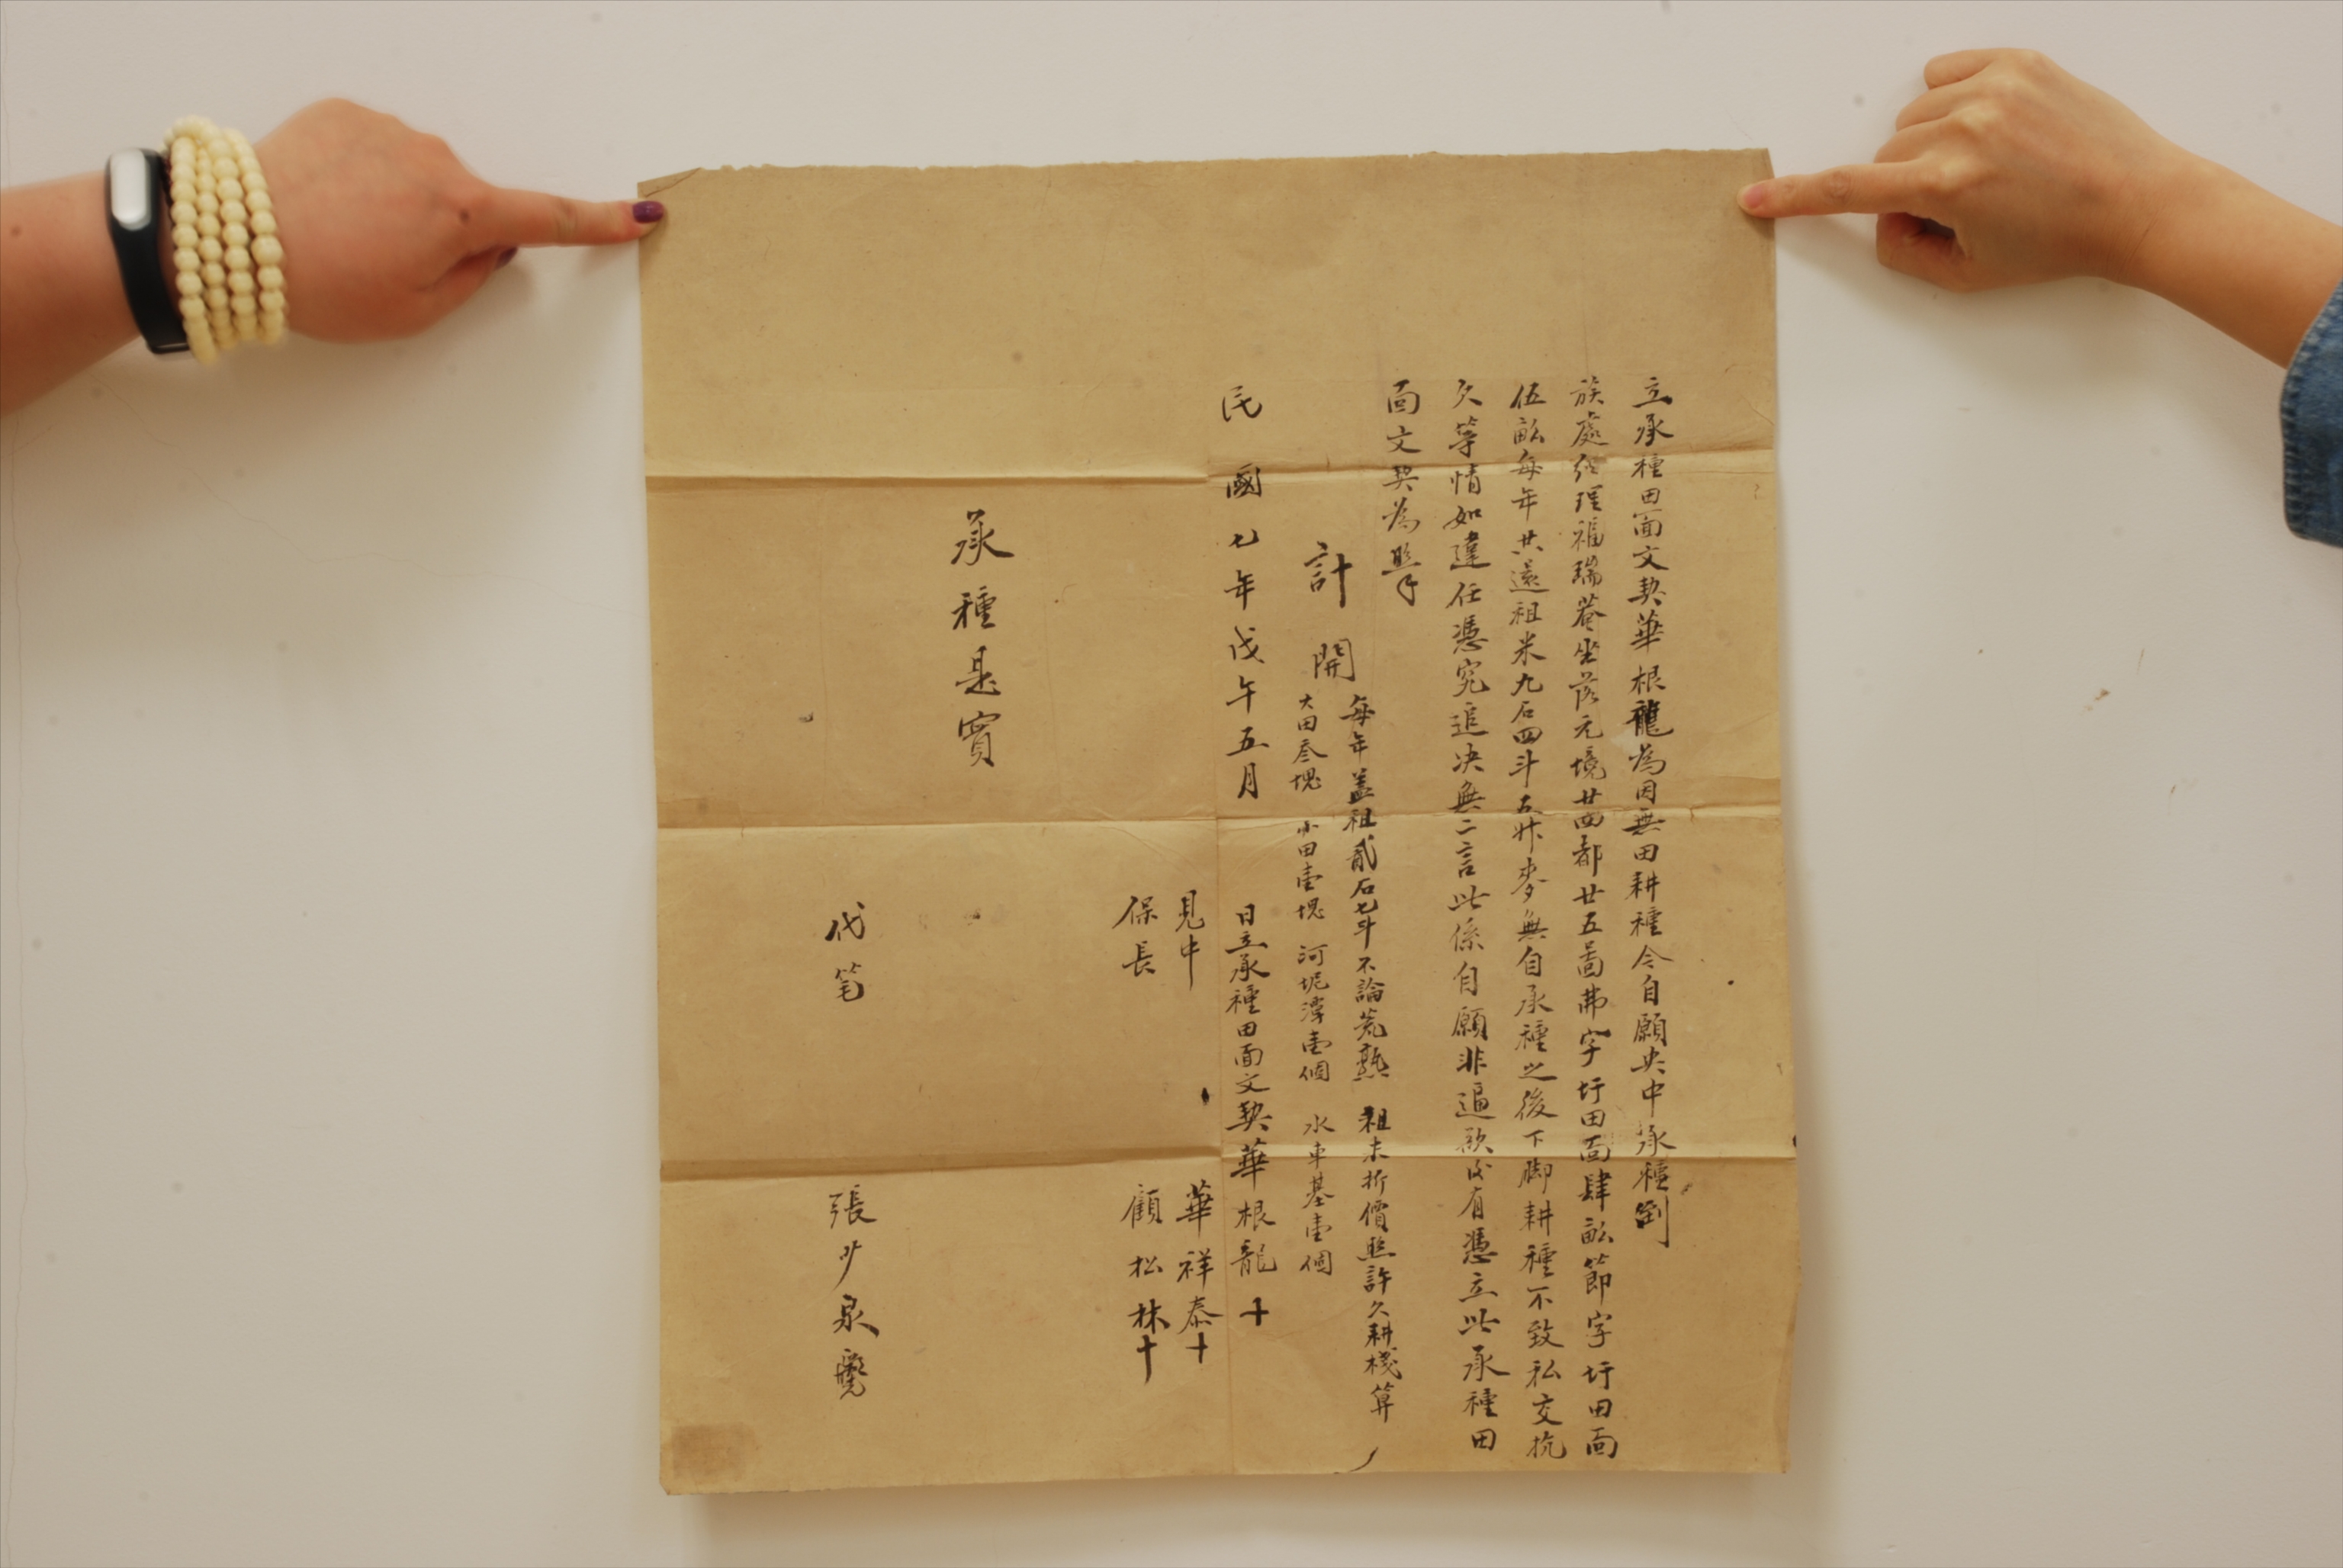 立承種田面文契華根龍為因無田耕種今自願央中承種到
族處經理福瑞菴坐落元境廿四都廿五啚弗字圩田面肆畝節字圩田面
伍畝每年共還租米九石四斗五升麥無自承種之後下脚耕種不致私交抗
欠等情如違任憑究追决無二言此係自願非逼欲後有憑立此承種田
面文契為照
計開
每年蓋租貳石七斗不論荒熟 租未折價照許久耕棧算
大田叁塊 小田壹塊 河坭潭壹個 水車基壹個
民國七年戊午五月 日立承種田面文契華根龍十
見中 華祥泰十
保長 顧松林十
承種是實
代笔 張少泉